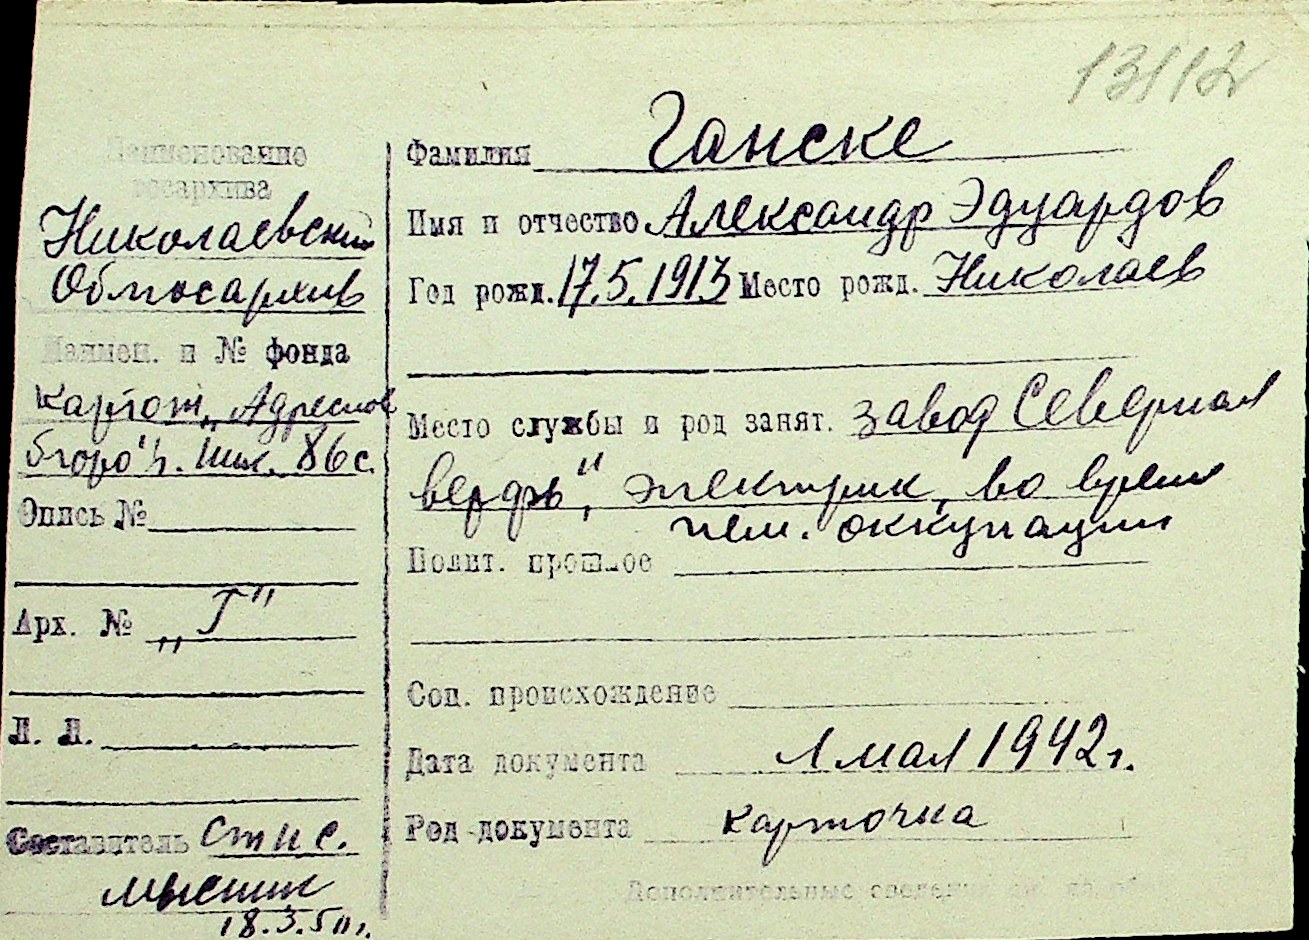 13112
Наименование
госархива
Николаевский
Облгосархив
Наимен. и № фонда
Картот. „Адресное
бюро" г.        86 с.
Опись №
Арх. № „Г"
Л. Л.
Составитель ст н с.
18.3.50 г.
Фамилия Ганске
Имя и отчество Александр Эдуардов
Год рожд. 17.5.1913 Место рожд. Николаев
Место службы и род занят. завод Северная
верфь", электрик, во время
нем. оккупации
Полит. прошлое
Соц. происхождение
Дата документа 1 мая 1942 г.
Род документа карточка
Дополнительные сведения на обор